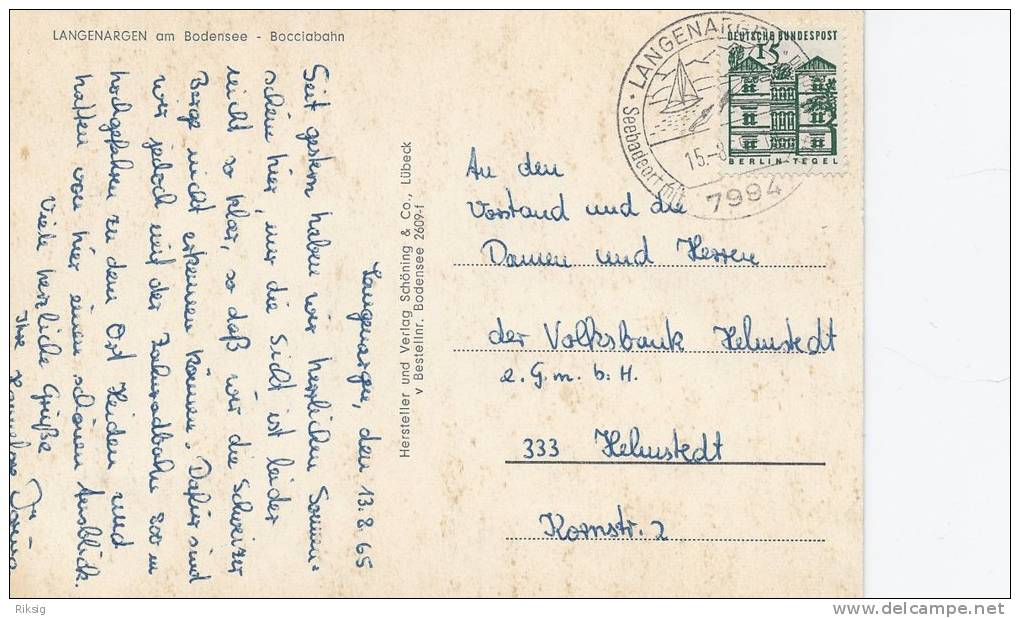 LANGENARGEN am Bodensee - Bocciabahn
Langenargen, den 13.8.65
Seit gestern haben wir herrlichen Sonnen-
schein hier, nur die Sicht ist leider
nicht so klar, so daß wir die Schweizer
Berge nicht erkennen können. Dafür sind
wir jedoch mit der Zahnradbahn 800 m
hochgefahren zu dem Ort Heiden und
hatten von hier einen schönen Ausblick.
Viele herzliche Grüße
Ihre
Hannelore
Hersteller und Verlag Schöning & Co., Lübeck
v Bestellnr. Bodensee 2609-f
LANGENARGEN
Seebadeort
15.-8
7994
DEUTSCHE BUNDESPOST
15
BERLIN-TEGEL
An den
Vorstand und die
Damen und Herren
der Volksbank Helmstedt
e.G.m.b.H.
333 Helmstedt
Kornstr. 2
Riksig
www.delcampe.net